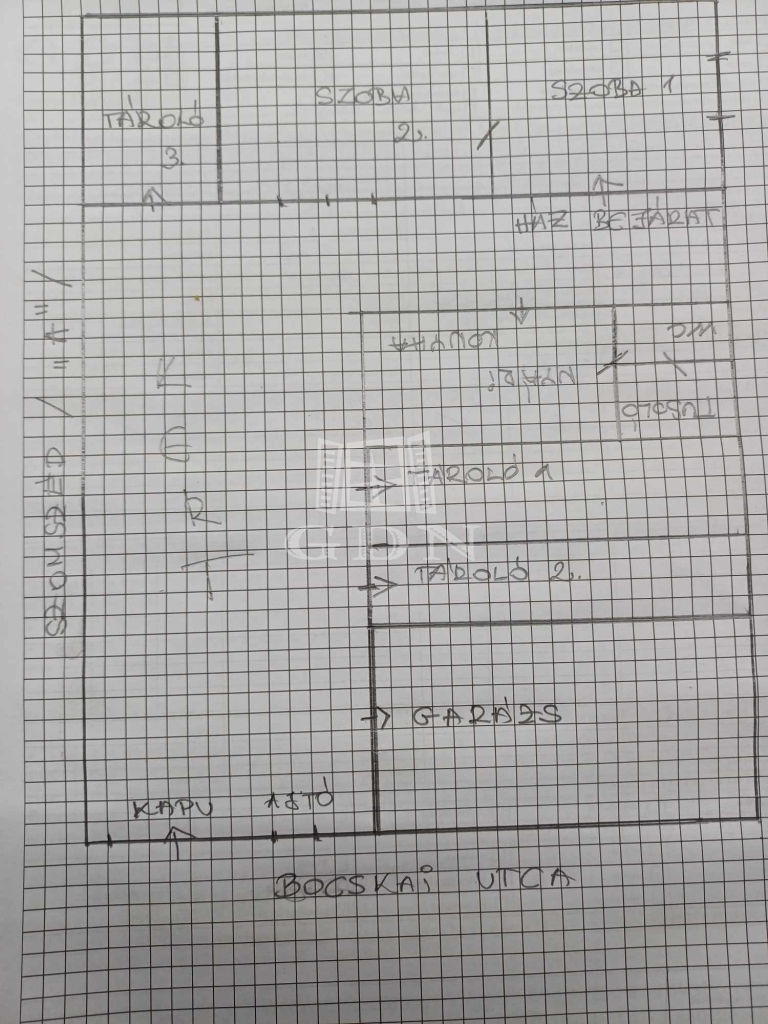 TÁROLÓ
3.
SZOBA
2.
SZOBA 1
HÁZ BEJÁRAT
SZOMSZÉD / "A" /
KERT
NYÁRI
KONYHA
WC
TUSOLÓ
TÁROLÓ 1
GDN
TÁROLÓ 2.
GARÁZS
KAPU
AJTÓ
BOCSKAI UTCA